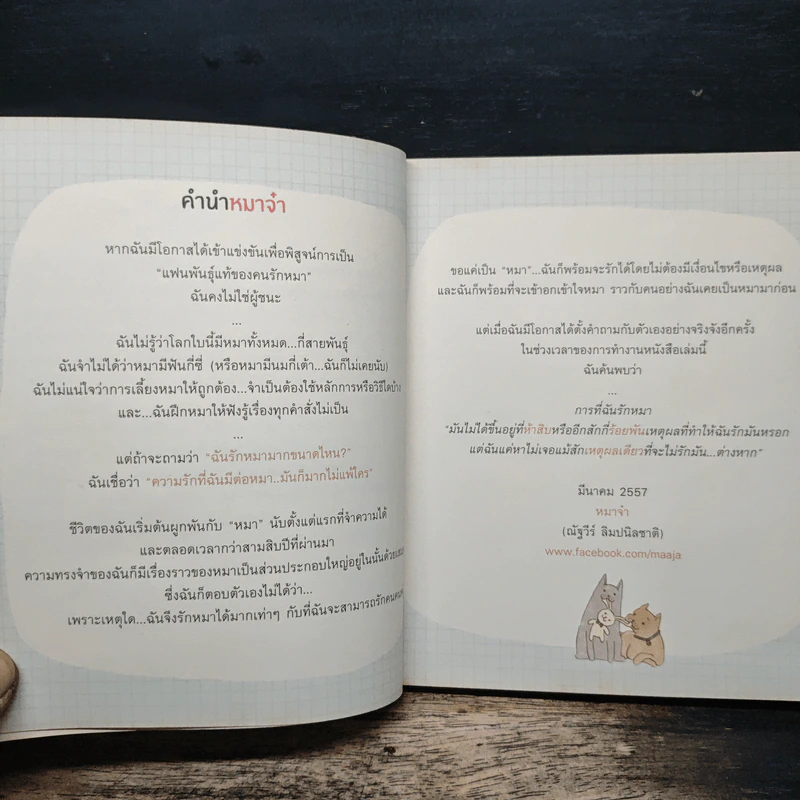 คำนำหมาจ๋า
หากฉันมีโอกาสได้เข้าแข่งขันเพื่อพิสูจน์การเป็น
“แฟนพันธุ์แท้ของคนรักหมา”
ฉันคงไม่ใช่ผู้ชนะ
...
ฉันไม่รู้ว่าโลกใบนี้มีหมาทั้งหมด...กี่สายพันธุ์
ฉันจำไม่ได้ว่าหมามีฟันกี่ซี่ (หรือหมามีนมกี่เต้า...ฉันก็ไม่เคยนับ)
ฉันไม่แน่ใจว่าการเลี้ยงหมาให้ถูกต้อง...จำเป็นต้องใช้หลักการหรือวิธีใดบ้าง
และ...ฉันฝึกหมาให้ฟังรู้เรื่องทุกคำสั่งไม่เป็น
...
แต่ถ้าจะถามว่า “ฉันรักหมามากขนาดไหน?”
ฉันเชื่อว่า “ความรักที่ฉันมีต่อหมา..มันก็มากไม่แพ้ใคร”
ชีวิตของฉันเริ่มต้นผูกพันกับ “หมา” นับตั้งแต่แรกที่จำความได้
และตลอดเวลากว่าสามสิบปีที่ผ่านมา
ความทรงจำของฉันก็มีเรื่องราวของหมาเป็นส่วนประกอบใหญ่อยู่ในนั้นด้วย
ซึ่งฉันก็ตอบตัวเองไม่ได้ว่า...
เพราะเหตุใด...ฉันจึงรักหมาได้มากเท่าๆ กับที่ฉันจะสามารถรักคน
ขอแค่เป็น “หมา”...ฉันก็พร้อมจะรักได้โดยไม่ต้องมีเงื่อนไขหรือเหตุผล
และฉันก็พร้อมที่จะเข้าอกเข้าใจหมา ราวกับคนอย่างฉันเคยเป็นหมามาก่อน
แต่เมื่อฉันมีโอกาสได้ตั้งคำถามกับตัวเองอย่างจริงจังอีกครั้ง
ในช่วงเวลาของการทำงานหนังสือเล่มนี้
ฉันค้นพบว่า
...
การที่ฉันรักหมา
“มันไม่ได้ขึ้นอยู่ที่ห้าสิบหรืออีกสักกี่ร้อยพันเหตุผลที่ทำให้ฉันรักมันหรอก
แต่ฉันแค่หาไม่เจอแม้สักเหตุผลเดียวที่จะไม่รักมัน...ต่างหาก”
มีนาคม 2557
หมาจ๋า
(ณัฐวีร์ ลิมปนิลชาติ)
www.facebook.com/maaja